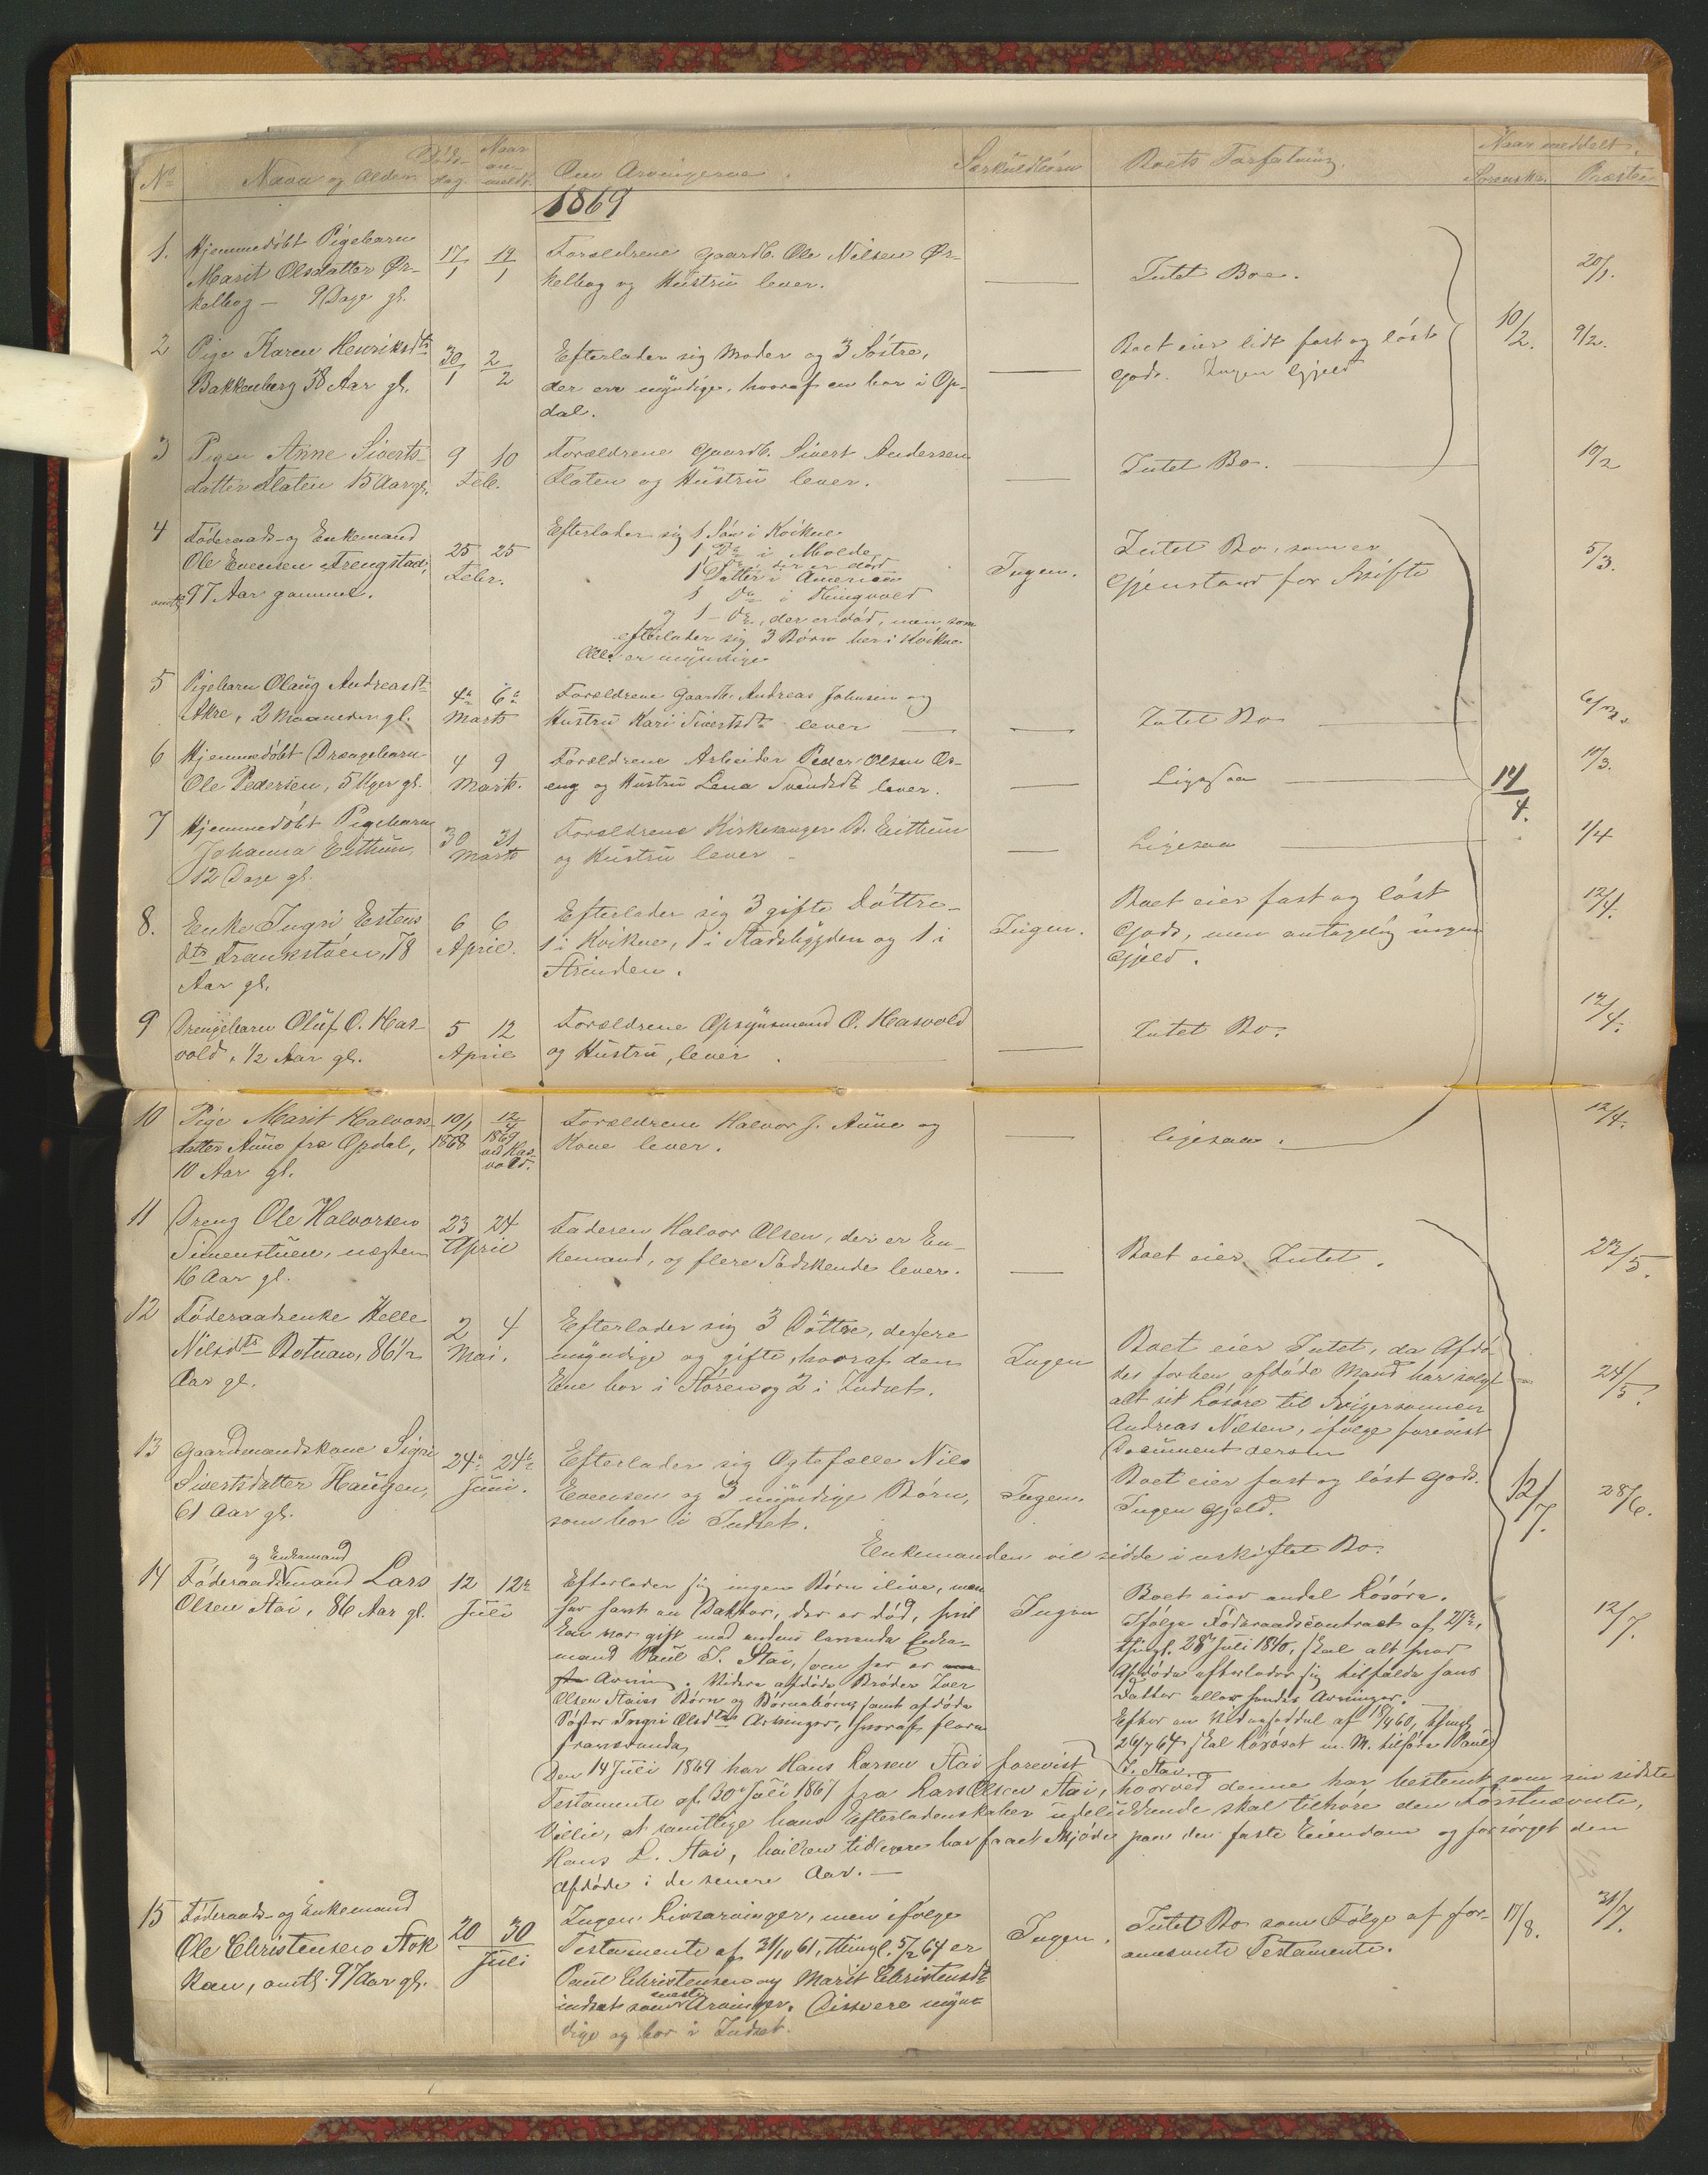 No Navn og Alder. Døds- dag. Naar an- meldt. Om Arvingerne. Særkuldbørn Boets Forfatning. Naar meddelt. Sorenskr. Præsten
1869
1. Hjemmedøbt Pigebarn 17/1 19/1 Forældrene Gaardb. Ole Nilsen Ør- Intet Boe. 20/1.
Marit Olsdatter Ør- kelbog og Hustru lever.
kelbog — 9 Dage gl.
2 Pige Karen Henriksdtr 30/1 2/2 Efterlader sig Moder og 3 Søstre, Boet eier lidt fast og løst 10/2. 9/2.
Bakkenberg 38 Aar gl. der ere myndige, hvoraf en bor i Op- Gods. Ingen Gjæld
dal.
3 Pigen Anne Siverts- 9 10 Forældrene Gaardb. Sivert Andersen Intet Bo. 10/2
datter Floten 15 Aar gl. Feb. Floten og Hustru lever.
4 Føderaads- og Enkemand 25 25 Efterlader sig 1 Søn i Kvikne Ingen. Intet Bo, som er 5/3.
Ole Evensen Frengstad, Febr. 1 Do i Molde Gjenstand for Skifte
omtr. 97 Aar gammel. 1 Do, der er død
1 Datter i Amerika
1 Do i Tingvold
og 1 Do, der er død, men som
efterlader sig 3 Børn her i Kvikne
Alle er myndige
5 Pigebarn Olaug Andreasdt 4de 6te Forældrene Gaardb. Andreas Johnsen og Intet Bo 6/3.
Akre, 2 Maaneder gl. Marts Hustru Kari Sivertsdt lever
6 Hjemmedøbt Drengebarn 4 9 Forældrene Arbeider Peder Olsen Ør- Ligesaa 10/3.
Ole Pedersen, 5 Uger gl. Marts. eng og Hustru Lena Svendsdt lever. 14/4.
7 Hjemmedøbt Pigebarn 30 31 Forældrene Kirkesanger B. Eithun Ligesaa 1/4
Johanna Eithun, Marts og Hustru lever
12 Dage gl.
8. Enke Ingri Estens 6 6 Efterlader sig 3 gifte Døttre— Ingen. Boet eier fast og løst 12/4.
dtr Frankstøen, 78 April. 1 i Kvikne, 1 i Stadsbygden og 1 i Gods, men antagelig ingen
Aar gl. Strinden. Gjæld.
9 Drengebarn Oluf O. Has- 5 12 Forældrene Opsynsmand O. Hasvold Intet Bo. 12/4.
vold, 1/2 Aar gl. April og Hustru, lever.
10 Pige Marit Halvors- 10/1 12/4 Forældrene Halvor J. Aune og ligesaa. 12/4.
datter Aune fra Opdal, 1868 1869 Kone lever.
10 Aar gl. ved Has- vold.
11 Dreng Ole Halvorsen 23 24 Faderen Halvor Olsen, der er En- Boet eier Intet. 23/5.
Simenstuen, næsten April kemand, og flere Sødskende lever.
16 Aar gl.
12 Føderaadsenke Helle 2 4 Efterlader sig 3 Døttre, der ere Ingen Boet eier Intet, da Afdø- 24/5.
Nilsdtr Botnan, 86 1/2 Mai. myndige og gifte, hvoraf den des forhen afdøde Mand har solgt
Aar gl. Ene bor i Støren og 2 i Indset. alt sit Løsøre til Svigersønnen
Andreas Nilsen, ifølge forevist
Document derom
13 Gaardmandskone Sigri 24de 24de Efterlader sig Ægtefælle Nils Ingen. Boet eier fast og løst Gods. 12/7. 28/6.
Sivertsdatter Haugen, Juni. Evensen og 3 myndige Børn, Ingen Gjæld.
61 Aar gl. som bor i Indset.
Enkemanden vil sidde i uskiftet Bo.
og Enkemand
14 Føderaadsmand Lars 12 12te Efterlader sig ingen Børn ilive, men Ingen Boet eier endel Løsøre. 12/7.
Olsen Stai, 86 Aar gl. Juli har havt en Datter, der er død, hvil Ifølge Føderaadscontract af 27de,
ken var gift med endnu levende Enke- thingl. 28de Juli 1840, skal alt hvad
mand Paul T. Stai, som her er Afdøde efterlader sig tilfalde hans
Arving. Videre afdøde Broder Iver Datter eller hendes Arvinger.
Olsen Stais Børn og Børnebørn, samt afdøde Efter en af 18/4 60, thingl.
Søster Ingri Olsdtrs Arvinger, hvoraf flere 26/7 64 skal Løsøret m. M. tilfalde Paul
fraværende T. Stai.
Den 14 Juli 1869 har Hans Larsen Stai forevist
Testamente af 30te Juli 1867 fra Lars Olsen Stai, hvorved denne har bestemt som sin sidste
Villie, at samtlige hans Efterladenskaber udelukkende skal tilhøre den Førstnævnte,
Hans L. Stai, hvilken tidligere har faaet Skjøde paa den faste Eiendom og forsørget den
Afdøde i de senere Aar. —
15 Føderaads- og Enkemand 20 30 Ingen Livsarvinger, men ifølge Ingen. Intet Bo som Følge af for- 17/8. 31/7.
Ole Christensen Stok Juli Testamente af 31/10 61, thingl. 5/2 64 er anævnte Testamente.
kan, omtr. 97 Aar gl. Paul Christensen og Marit Christensdt
indsat som Arvinger. Disse ere myn-
dige og bor i Indset.